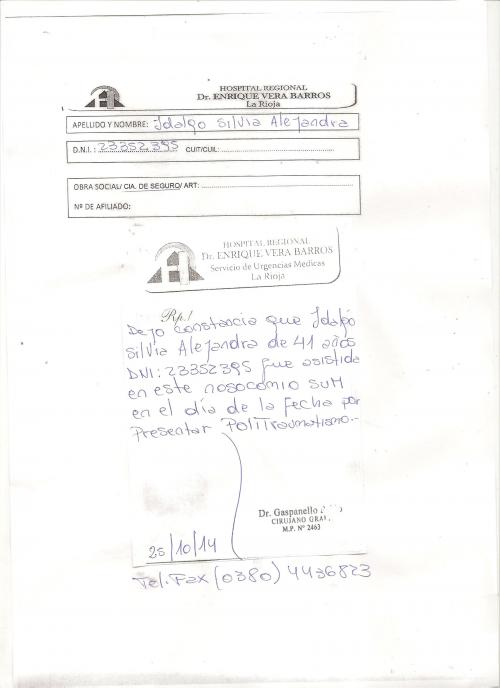 HOSPITAL REGIONAL
Dr. ENRIQUE VERA BARROS
La Rioja
APELLIDO Y NOMBRE: Idalgo Silvia Alejandra
D.N.I.: 23352395 CUIT/CUIL:
OBRA SOCIAL/ CIA. DE SEGURO/ ART:
Nº DE AFILIADO:
HOSPITAL REGIONAL
Dr. ENRIQUE VERA BARROS
Servicio de Urgencias Médicas
La Rioja
Rp./
Dejo constancia que Idalgo
Silvia Alejandra de 41 años
DNI: 23352395 fue asistida
en este nosocomio SUM
en el día de la fecha por
Presentar PoliTraumatismo.-
Dr. Gaspanello
CIRUJANO GRAL.
M.P. Nº 2463
25/10/14
Tel.Fax (0380) 4436823